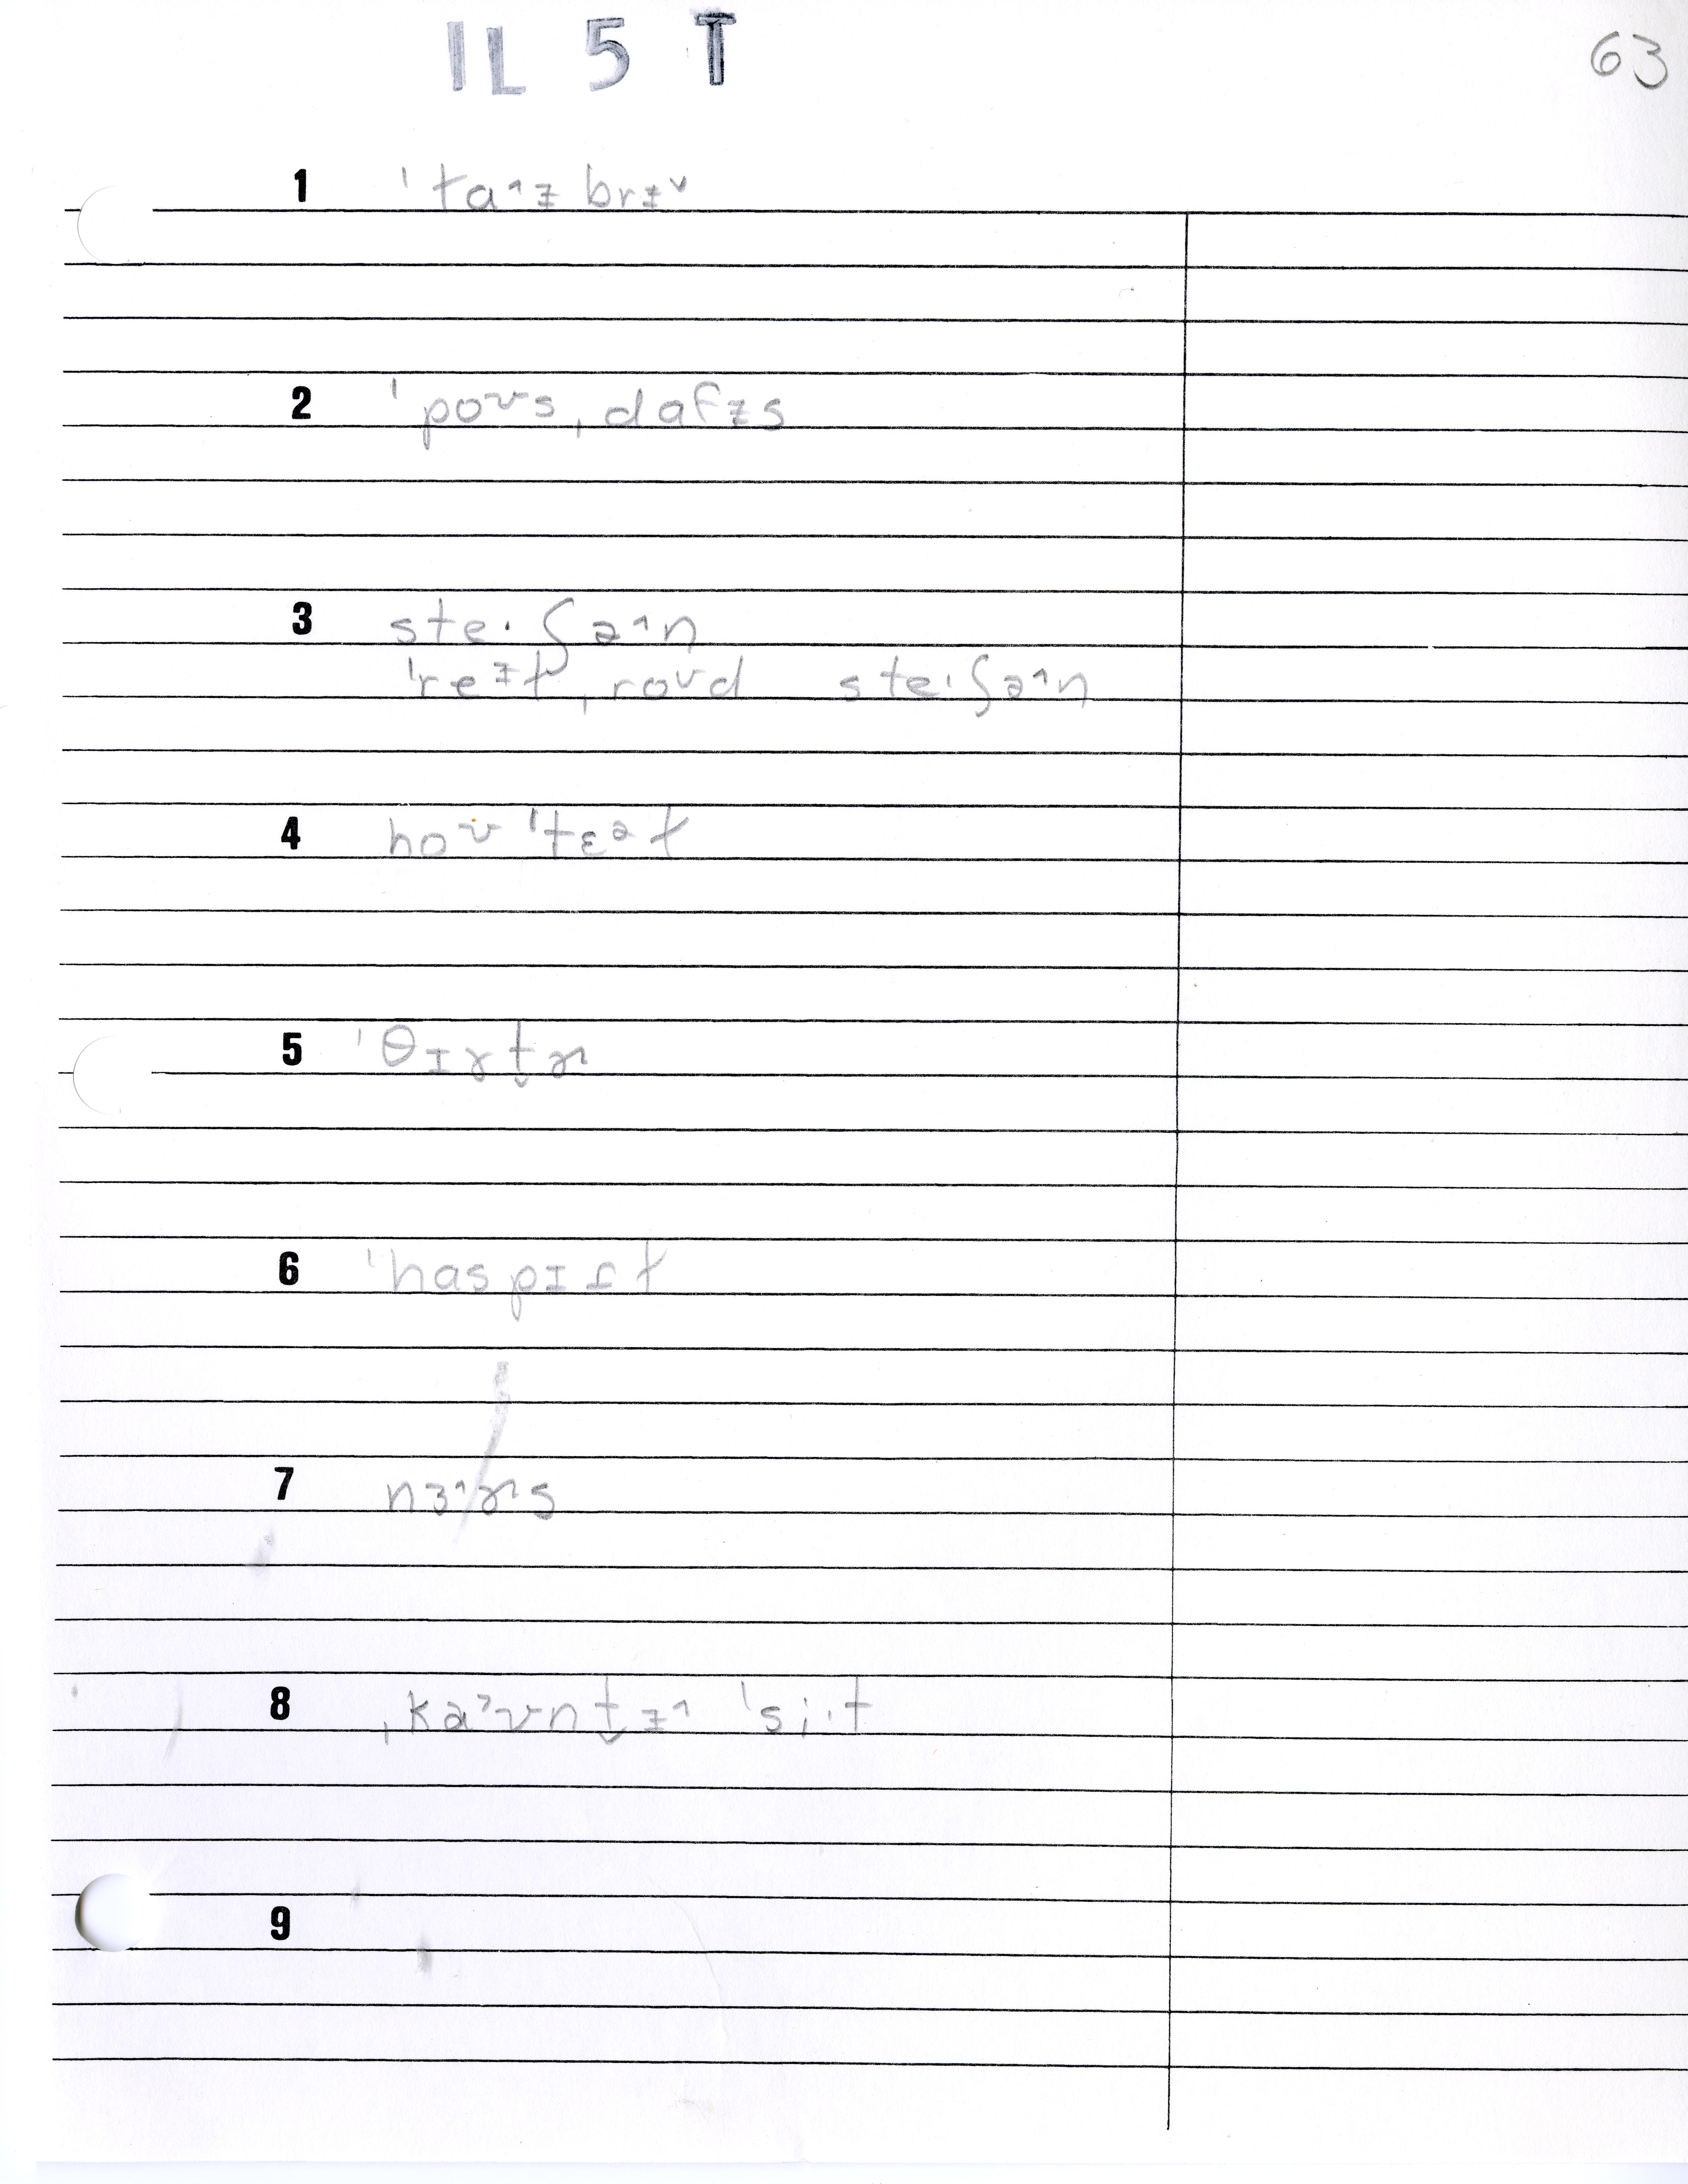 IL 5 T
63
1 ˈtaᶺɪ brɪᵛ
2 ˈpoᶷs ˌdafɪs
3 steˑʃəᶺn
ˈreᶦt ˌroᶷd steˑʃəᶺn
4 hoᶷ ˈtɛᵊɫ
5 ˈθɪɤt̬ɚ
6 ˈhaspɪɾɫ
7 nɜᶺɚs
8 ˌkaˀʊnt̬ɪᶺ ˈsiˑt
9